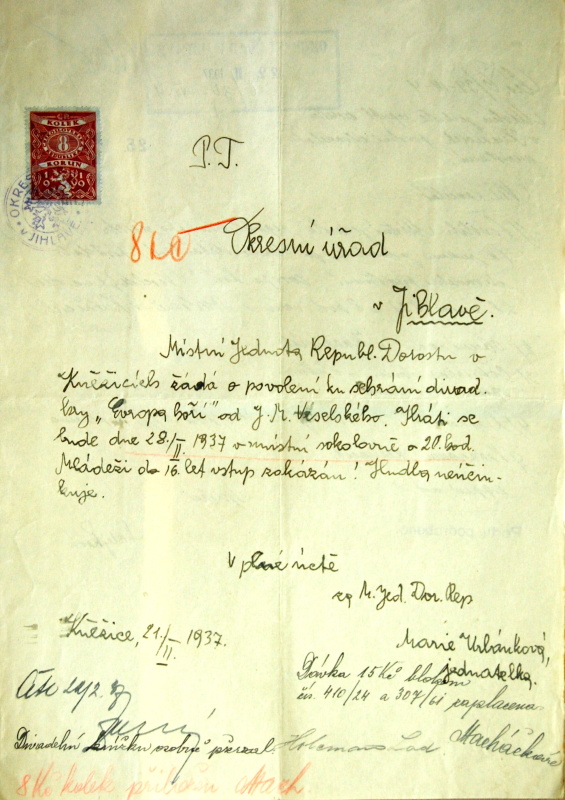 KOLEK
8
KORUN
OKRES
JIHLAVĚ
P. T.
8 Kč
Okresní úřad
v Jihlavě.
Místní Jednota Republ. Dorostu v
Kněžicích žádá o povolení ku sehrání divad.
hry „Evropa hoří" od J. M. Veselského. Hráti se
bude dne 28./II. 1937 v místní sokolovně o 20. hod.
Mládeži do 16. let vstup zakázán! Hudba neúčin-
kuje.
V plné úctě
za M. Jed. Dor. Rep
Kněžice, 21./II. 1937.
Marie Urbánková,
jednatelka.
Dávka 15 Kč blokem
čís. 410/24 a 307/61 zaplacena.
Divadelní osobně převzal.
8 Kč kolek přiložen Mach.